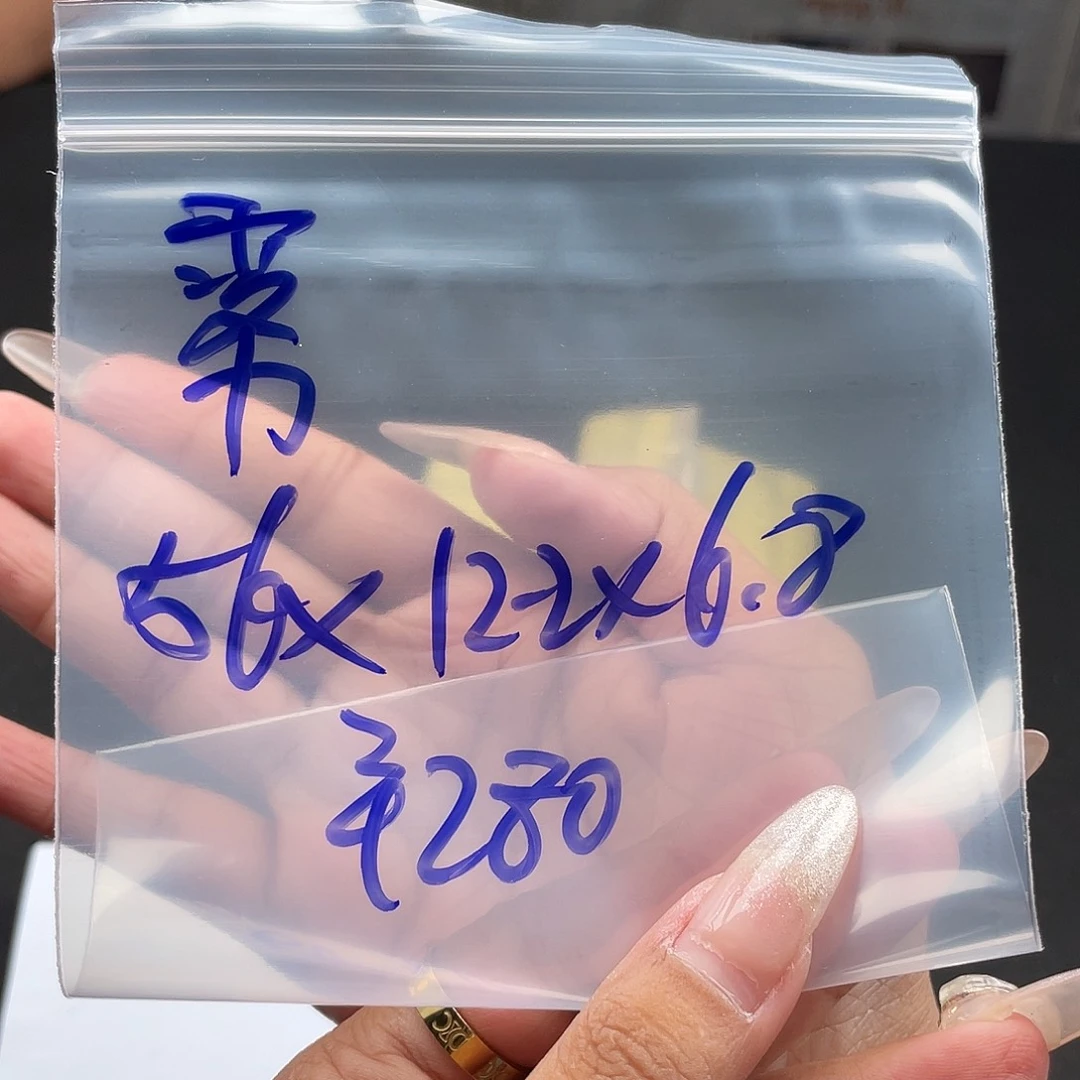 56x12.2x6.8
¥280